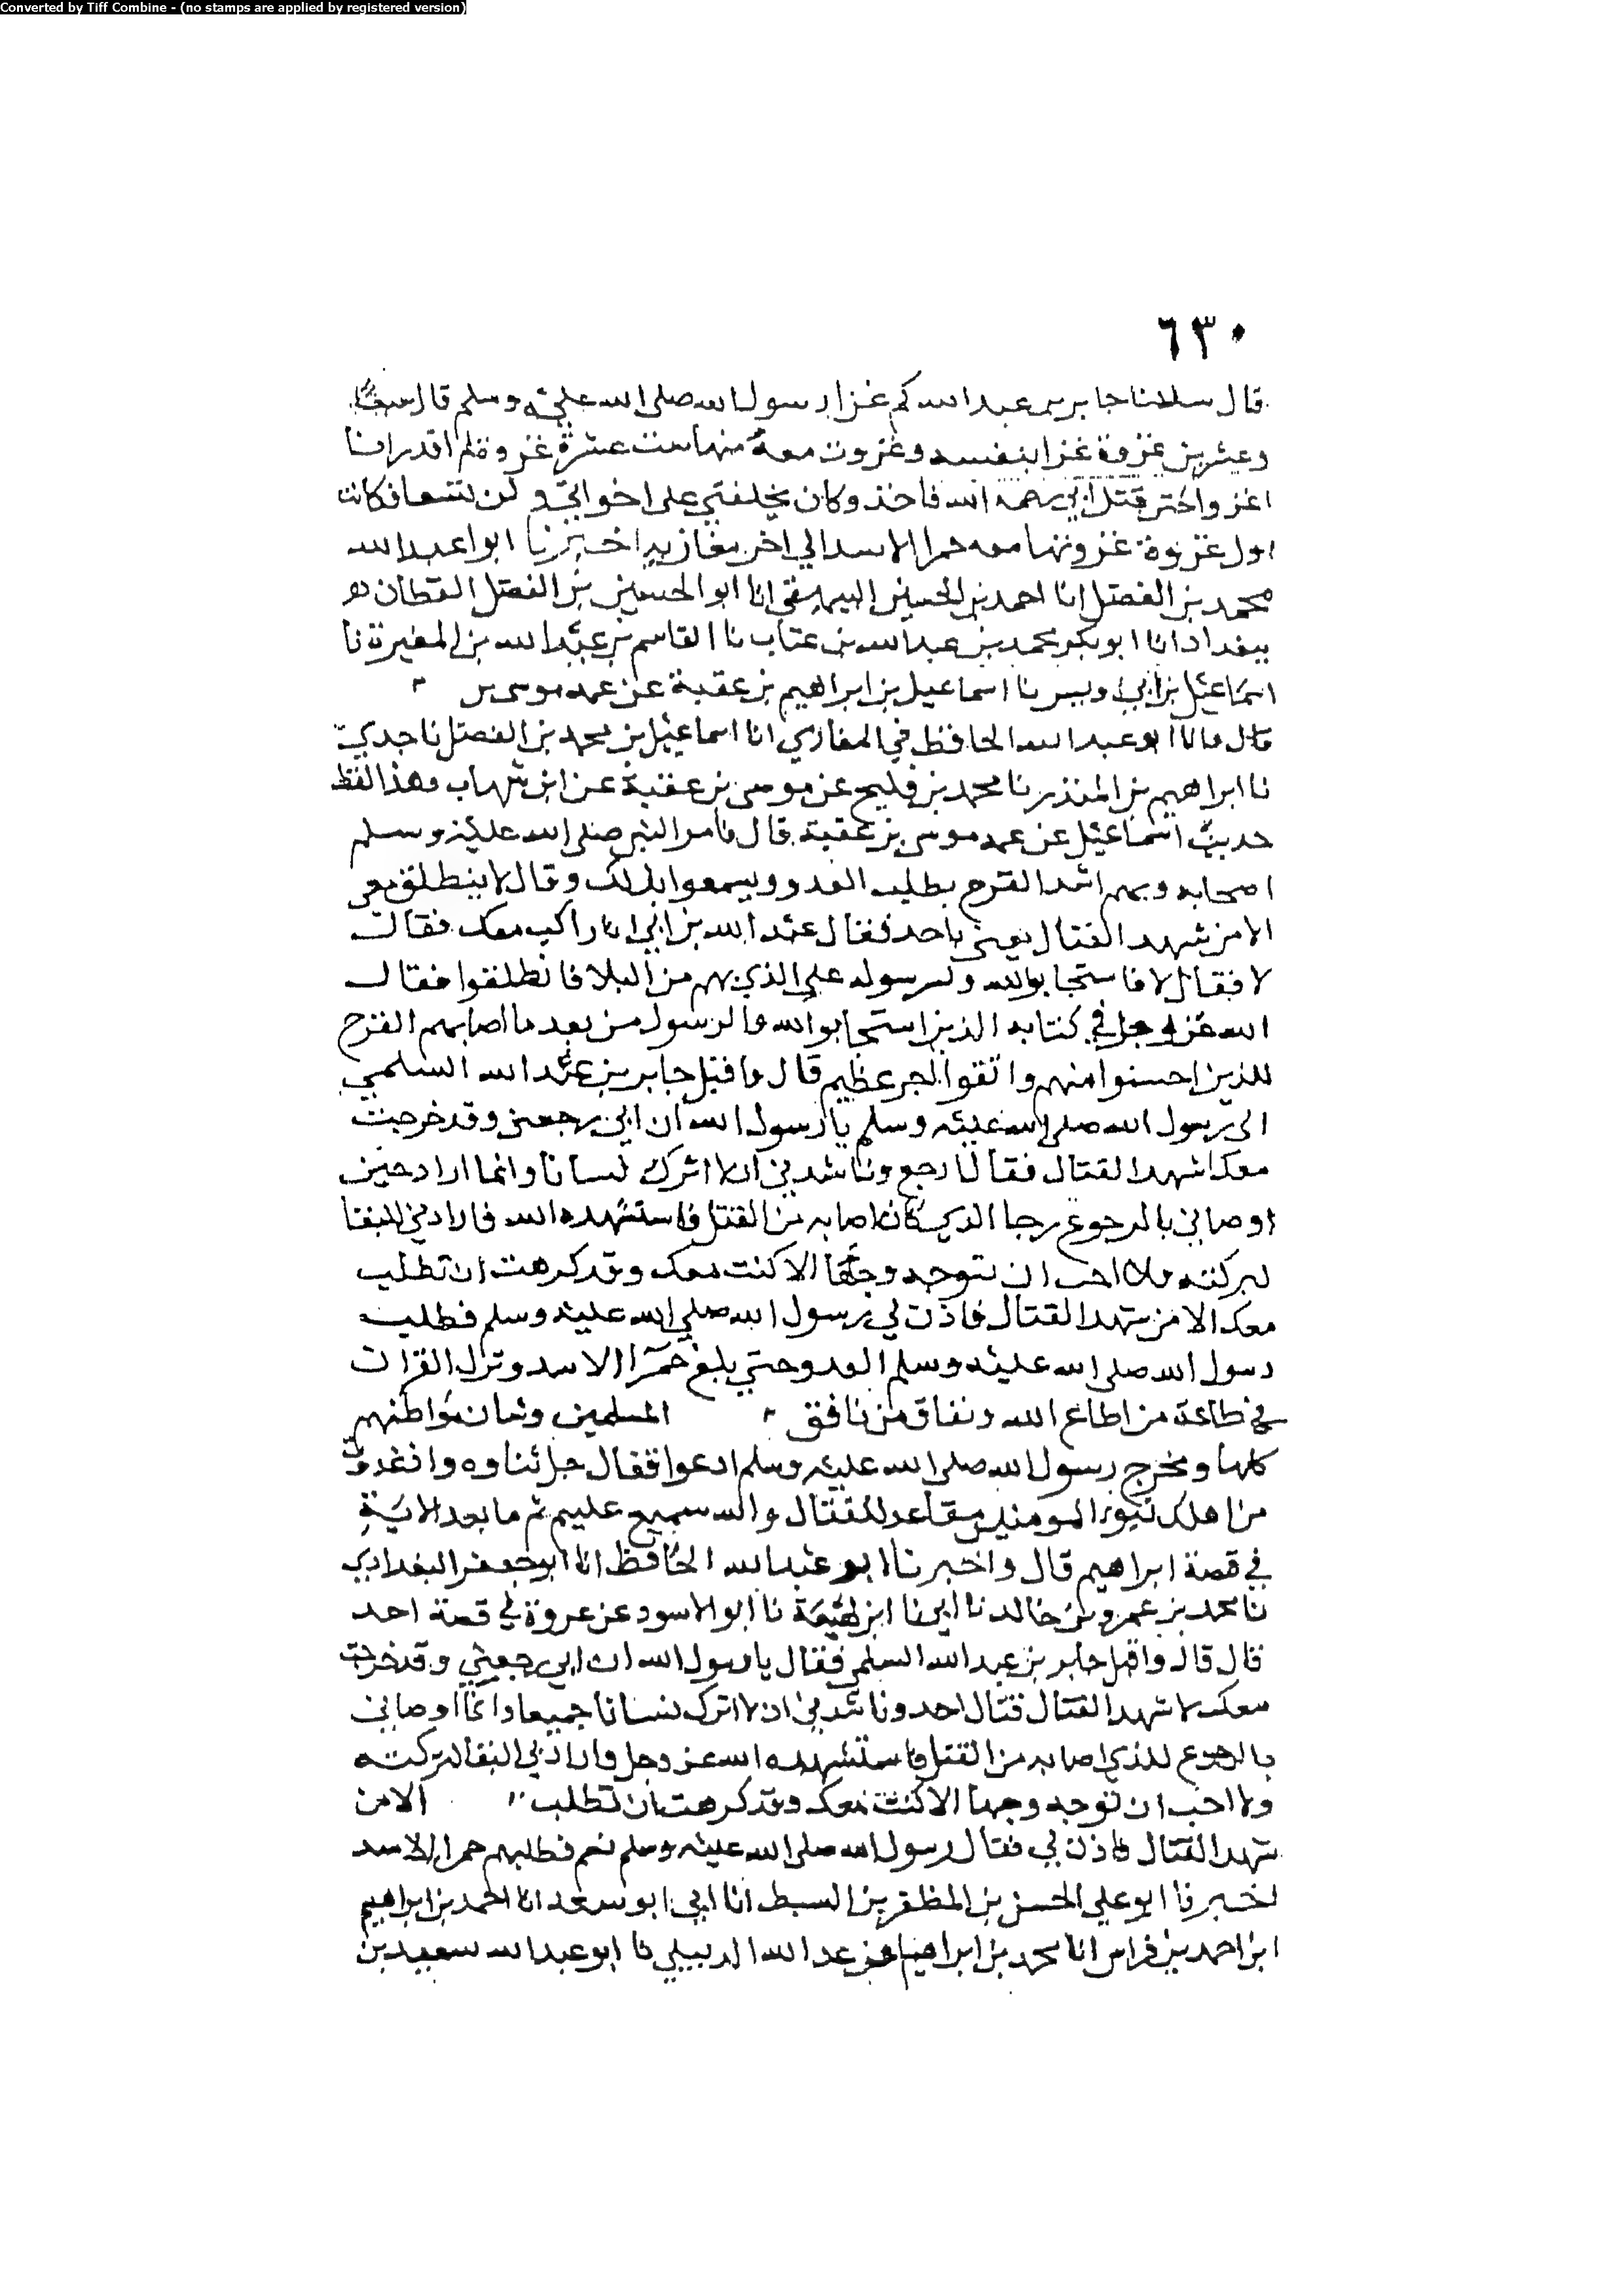 Converted by Tiff Combine - (no stamps are applied by registered version)
٦٣٠
قال سالنا جابر بن عبد الله كم غزا رسول الله صلى الله عليه وسلم قال سبعًا
وعشرين غزوة غزا بنفسه وغزوت معه منها ست عشرة غزوة ولم اقدر ان
اغزوا حتى قتل ابي رحمه الله فاحد وكان يخلفني على اخواتي وكن تسعا فكانت
اول غزوة غزوتها معه حمرا الاسد الي اخر مغازيه اخبرنا ابوا عبد الله
محمد بن الفضل انا احمد بن الحسين البيهقي انا ابو الحسين بن الفضل القطان
ببغداد انا ابو بكر محمد بن عبد الله بن عتاب نا القاسم بن عبد الله بن المغيرة نا
اسماعيل بن ابي اويس نا اسماعيل بن ابراهيم بن عقبة عن عمه موسى
قال وانا ابو عبد الله الحافظ في المغازي انا اسماعيل بن محمد بن الفضل نا جدي
نا ابراهيم بن المنذر نا محمد بن فليح عن موسى بن عقبة عن ابن شهاب وهذا لفظ
حديث اسماعيل عن عمه موسى بن عقبة قال وامر النبي صلى الله عليه وسلم
اصحابه وبهم اشد القرح بطلب العدو وليسمعوا بذلك وقال لا ينطلق معي
الا من شهد القتال يعني باحد فقال عبد الله بن ابي انا راكب معك فقال
لا فقال لا فاستجابوا لله ولرسوله على الذي بهم من البلا فانطلقوا فقال
الله عز وجل في كتابه الذين استجابوا لله والرسول من بعد ما اصابهم القرح
للذين احسنوا منهم واتقوا اجر عظيم قال واقبل جابر بن عبد الله السلمي
الى رسول الله صلى الله عليه وسلم يا رسول الله ان ابي رجعني وقد خرجت
معك اشهد القتال فقال ارجع وناشدني ان لا اترك نسانا وانما اراد حين
اوصاني بالرجوع رجا الذي كان اصابه من القتل فاستشهده الله فارادني للبقا
لبركته ولا احب ان تتوجه وجها الا كنت معك وقد كرهت ان تطلب
معك الا من شهد القتال فاذن لي رسول الله صلى الله عليه وسلم فطلب
رسول الله صلى الله عليه وسلم العدو حتي بلغ حمرا الاسد ونزل القران
في طاعة من اطاع الله ونفاق من نافق المسلمين وشان مواطنهم
كلها ومخرج رسول الله صلى الله عليه وسلم فقال جل ثناوه واذ غدوت
من اهلك تبوئ المومنين مقاعد للقتال والله سميع عليم ثم ما بعد الاية
في قصة ابراهيم قال واخبرنا ابو عبد الله الحافظ انا ابو جعفر البغدادي
نا محمد بن عمرو بن خالد نا ابي نا ابن لهيعة نا ابو الاسود عن عروة في قصة احد
قال قال واقبل جابر بن عبد الله السلمي فقال يا رسول الله ان ابي رجعني وقد خرجت
معك لاشهد القتال قتال احد وناشدني ان لا اترك نسانا جميعا وانما اوصاني
بالرجوع للذي اصابه من القتل فاستشهده الله عز وجل واراد بي البقا لتركته
ولا احب ان توجه وجها الا كنت معك وقد كرهت ان تطلب الا من
شهد القتال فاذن لي فقال رسول الله صلى الله عليه وسلم نعم فطلبهم حمرا الاسد
اخبرنا ابو علي الحسن بن المظفر بن السبط انا ابي ابو سعد انا احمد بن ابراهيم
ابن احمد بن فراس انا محمد بن ابراهيم بن عبد الله الديبلي نا ابو عبد الله سعيد بن